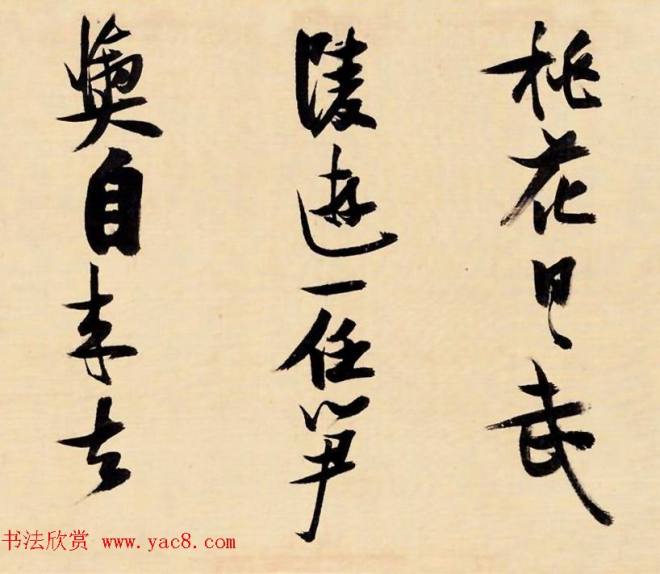 桃花日〻武
陵遊一任笋
輿自来去
书法欣赏 www.yac8.com